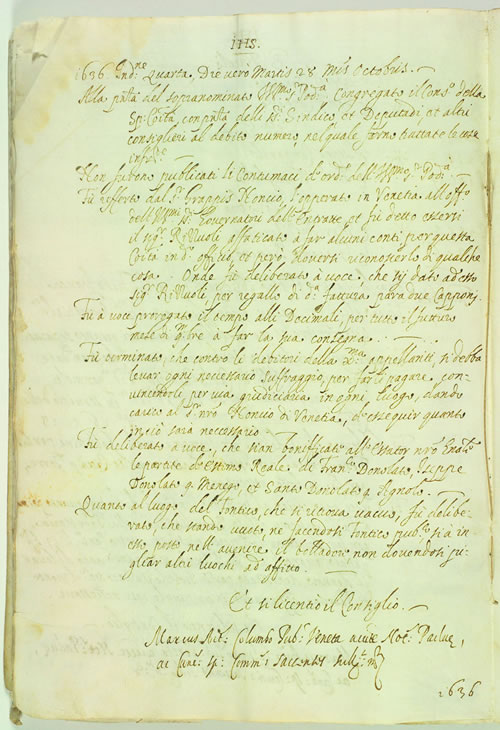 IHS.
1636 Ind.ne Quarta, Die vero Martis 28 mis Octobris.
Alla pnta del sopranominato Ill.mo s.r Pod.a Congregato il Cons.o della
Sp: Co.ita, con pnta delli ss.i Sindico, et Deputadi, et altri
consiglieri al debito numero, nel quale furno trattate le cose
infr.te
Non furono publicati li Contumaci d'ord.e dell'Ill.mo s.r Pod.a
Fu refferto dal s.r Noncio, l'opperato in Venetia all'off.o
dell'Ill.mi ss.i Governatori dell'Entrate, et fu detto essersi
il sig.r affaticato a far alcuni conti per questa
Co.ita in d.o officio, et però doversi riconoscerlo di qualche
cosa. Onde fu deliberato à voce, che sij dato ad esso
Sig.r per regallo di d.a fattura para due Capponj.
Fu à voce prorogato il tempo alli Decimali, per tutto il futturo
mese di 9bre à far la sua consegna.
Fu terminato, che contro le debitori della appellanti, si debba
levar ogni necessario suffraggio, per farli pagare, con-
vincerli, per via giudiciaria in ogni luogo, dando
carico al s.r nro Noncio di Venetia, d'esseguir quanto
in ciò sarà necessario.
Fu deliberato à voce, che sian bonificate all' Essator nro
le partite d'estimo Reale di Fran.co Donolato, Iseppe
Donolato q. Menego, et Santo Donolato q. Signolo.
Quanto al luogo del Fontico, che si ritrova vacuo, fu delibe-
rato, che stando vuoto, ne facendosi Fontico pub.o si à in
esso posto nell'avenire il bolladore non dovendosi pi-
gliar altri luochi ad officio.
Et si licentiò il Consiglio.
Marcus Ant: Columbo Pub: Veneta ac Not: Paduę,
ac Canc: Sp: Comm.s
1636